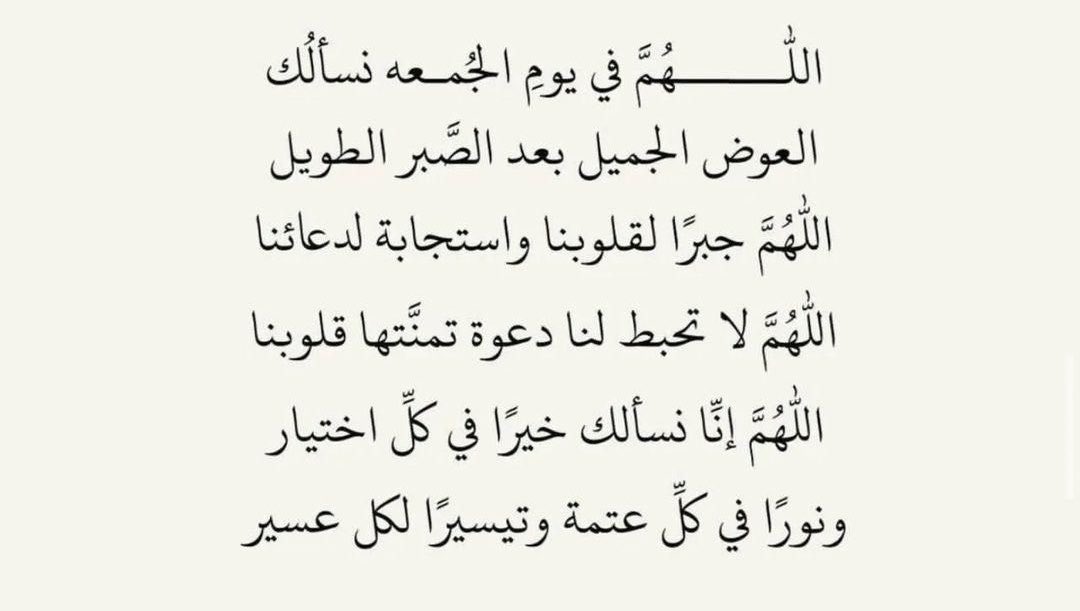 اللـــــــهُمَّ في يومِ الجُمـعه نسألُك
العوض الجميل بعد الصَّبر الطويل
اللهُمَّ جبرًا لقلوبنا واستجابة لدعائنا
اللهُمَّ لا تحبط لنا دعوة تمنَّتها قلوبنا
اللهُمَّ إنِّا نسألك خيرًا في كلِّ اختيار
ونورًا في كلِّ عتمة وتيسيرًا لكل عسير